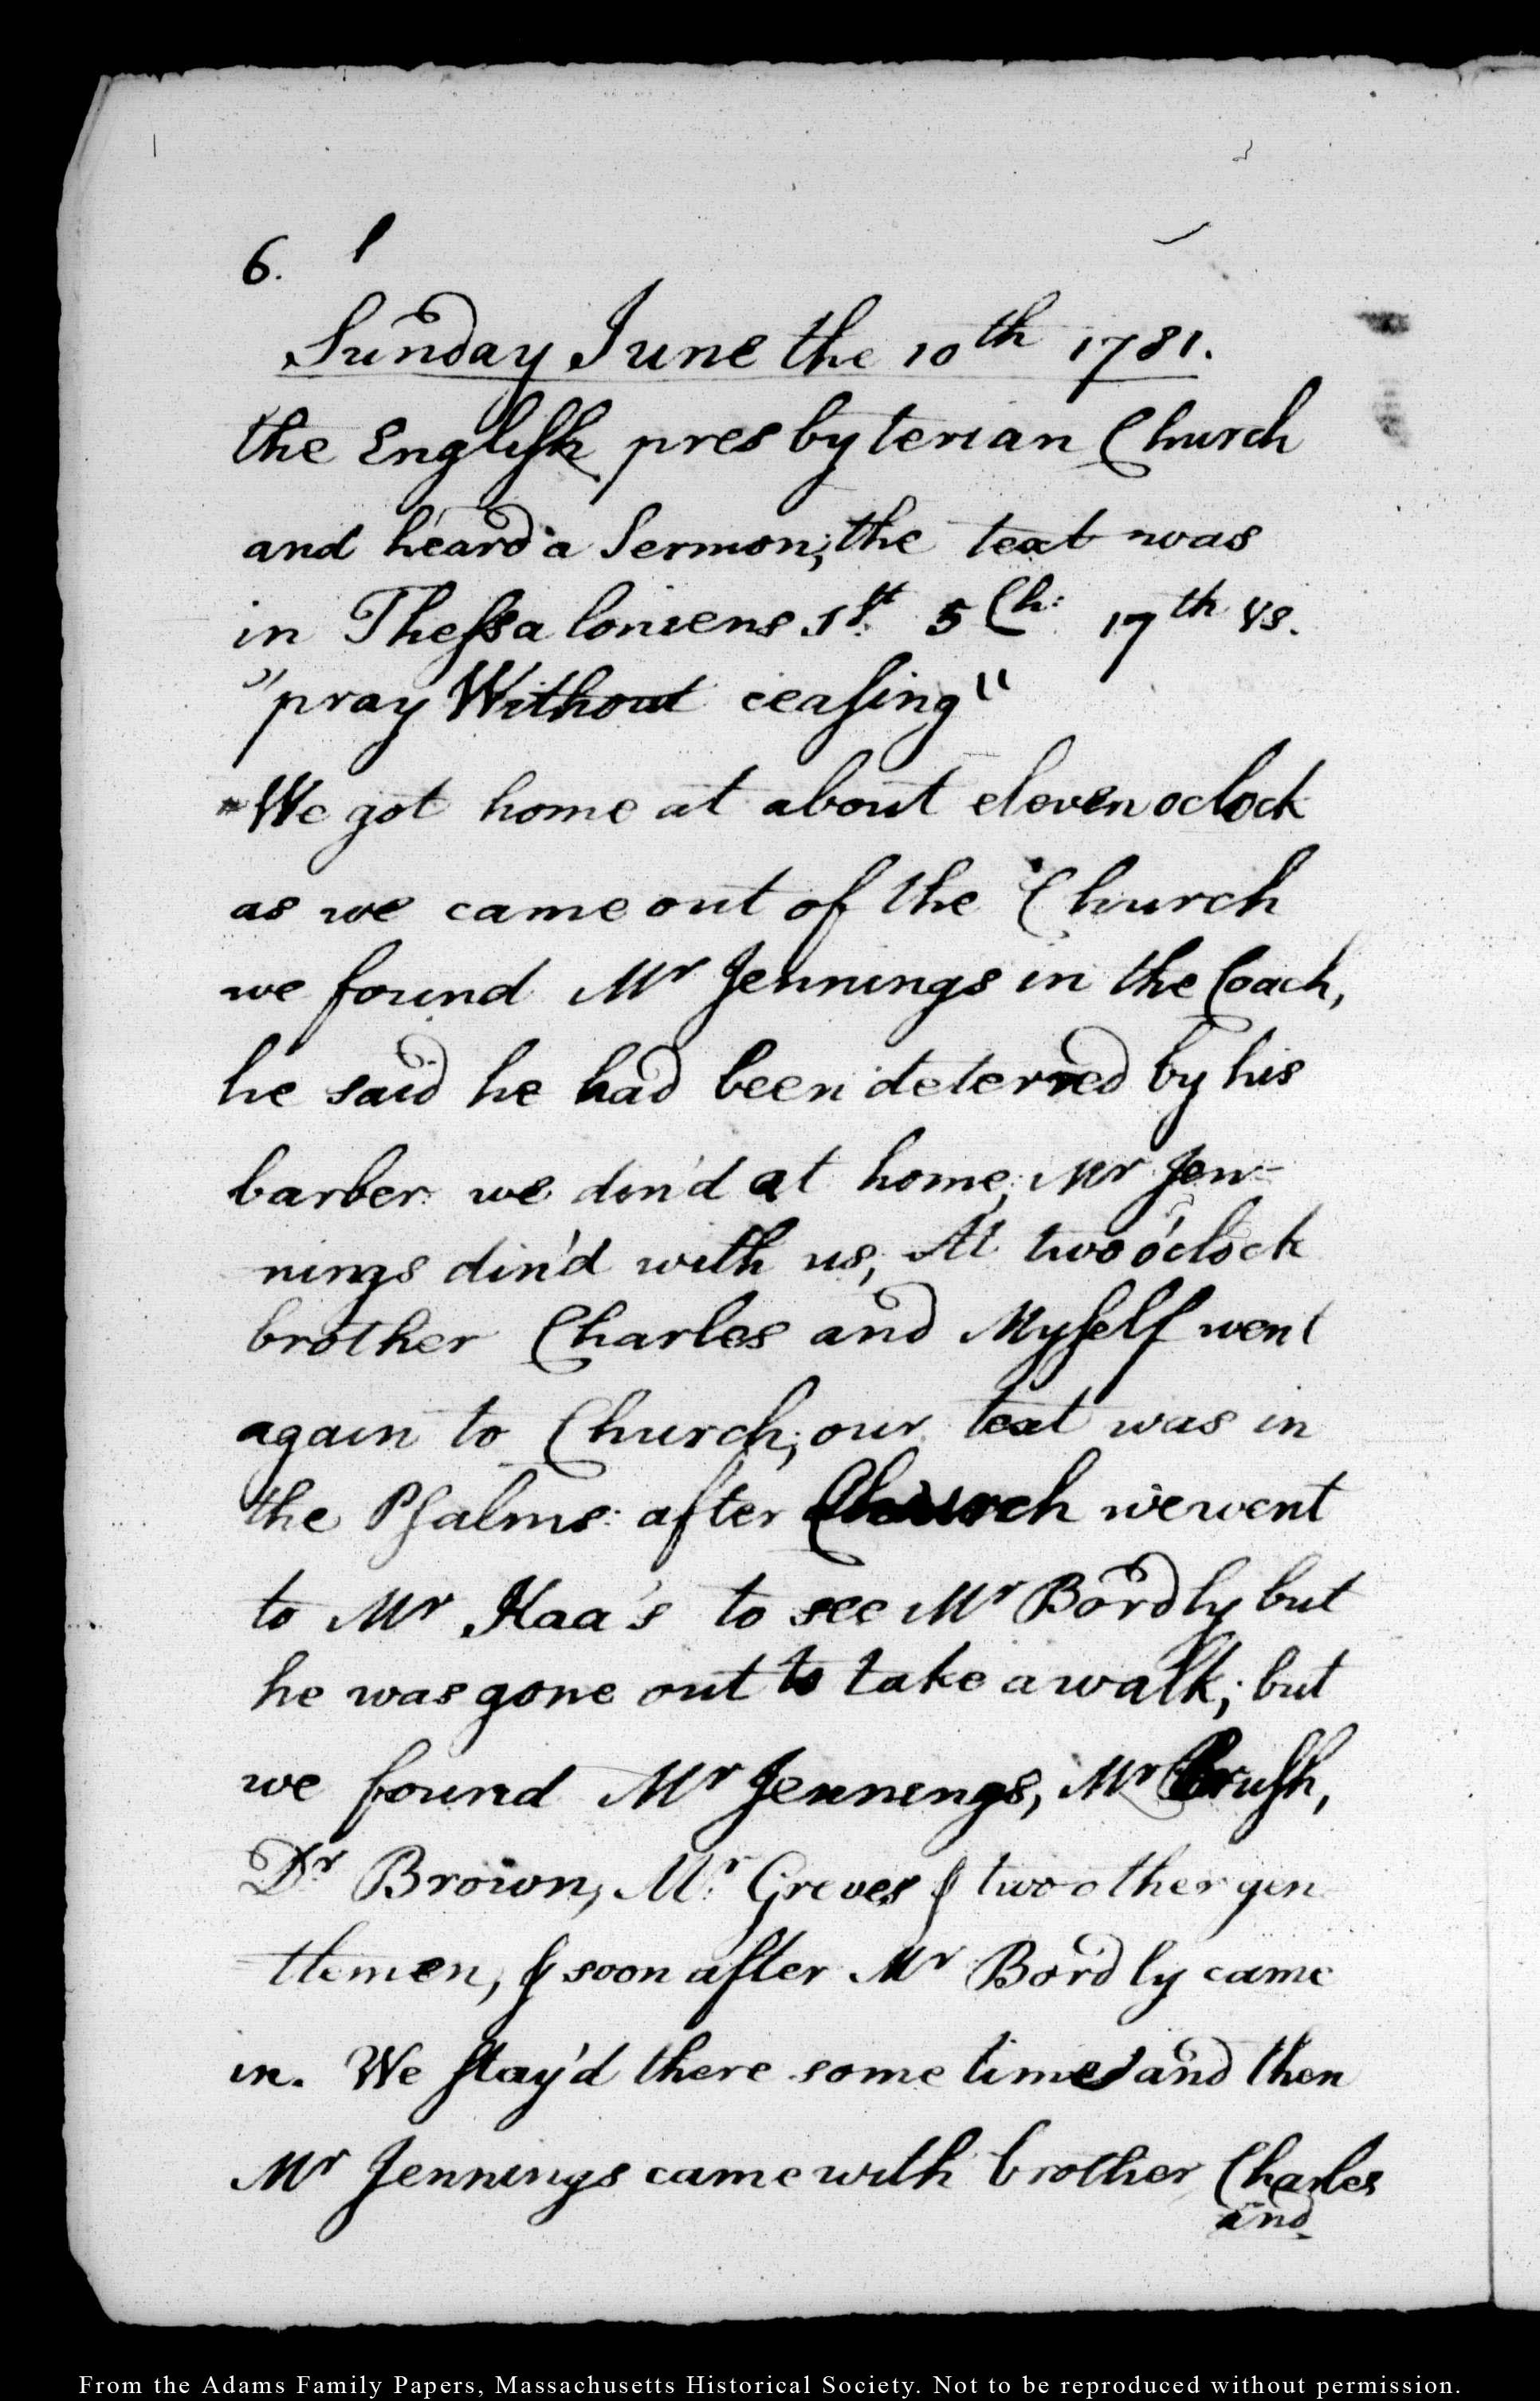 6.
Sunday June the 10th 1781.
the English presbyterian Church
and heard a Sermon; the text was
in Thessaloniens 1st. 5 Ch: 17th vs.
"pray Without ceasing"
We got home at about eleven oclock
as we came out of the Church
we found Mr Jennings in the Coach,
he said he had been deterred by his
barber we din'd at home, Mr Jen-
nings din'd with us, At two o'clock
brother Charles and Myself went
again to Church; our text was in
the Psalms: after Church we went
to Mr Haa's to see Mr Bordly but
he was gone out to take a walk; but
we found Mr Jennings, Mr Brush,
Dr Brown, Mr. Greves & two other gen
tlemen, & soon after Mr Bordly came
in. We stay'd there some time and then
Mr Jennings came with brother Charles
and
From the Adams Family Papers, Massachusetts Historical Society. Not to be reproduced without permission.